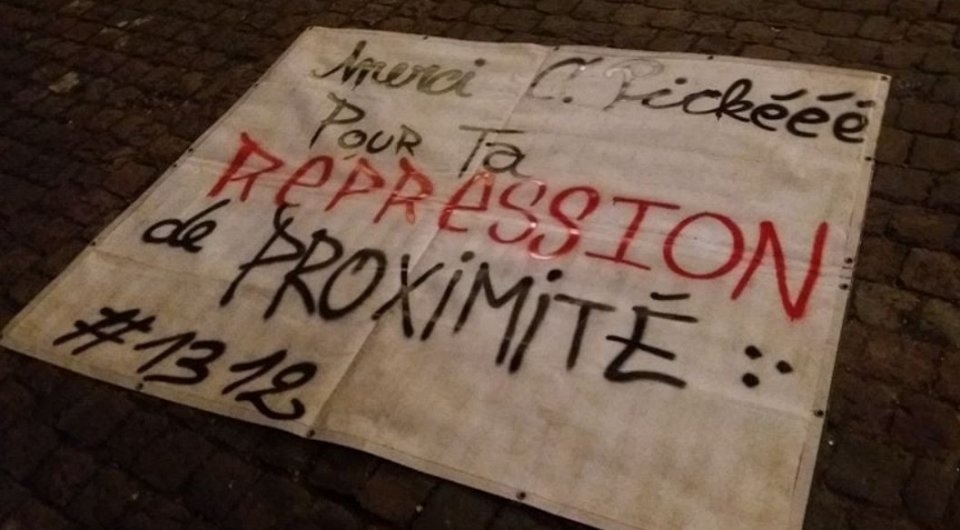 Merci C. Pickééé
POUR Ta
RePRESSION
de PROXiMiTÉ :.
#1312